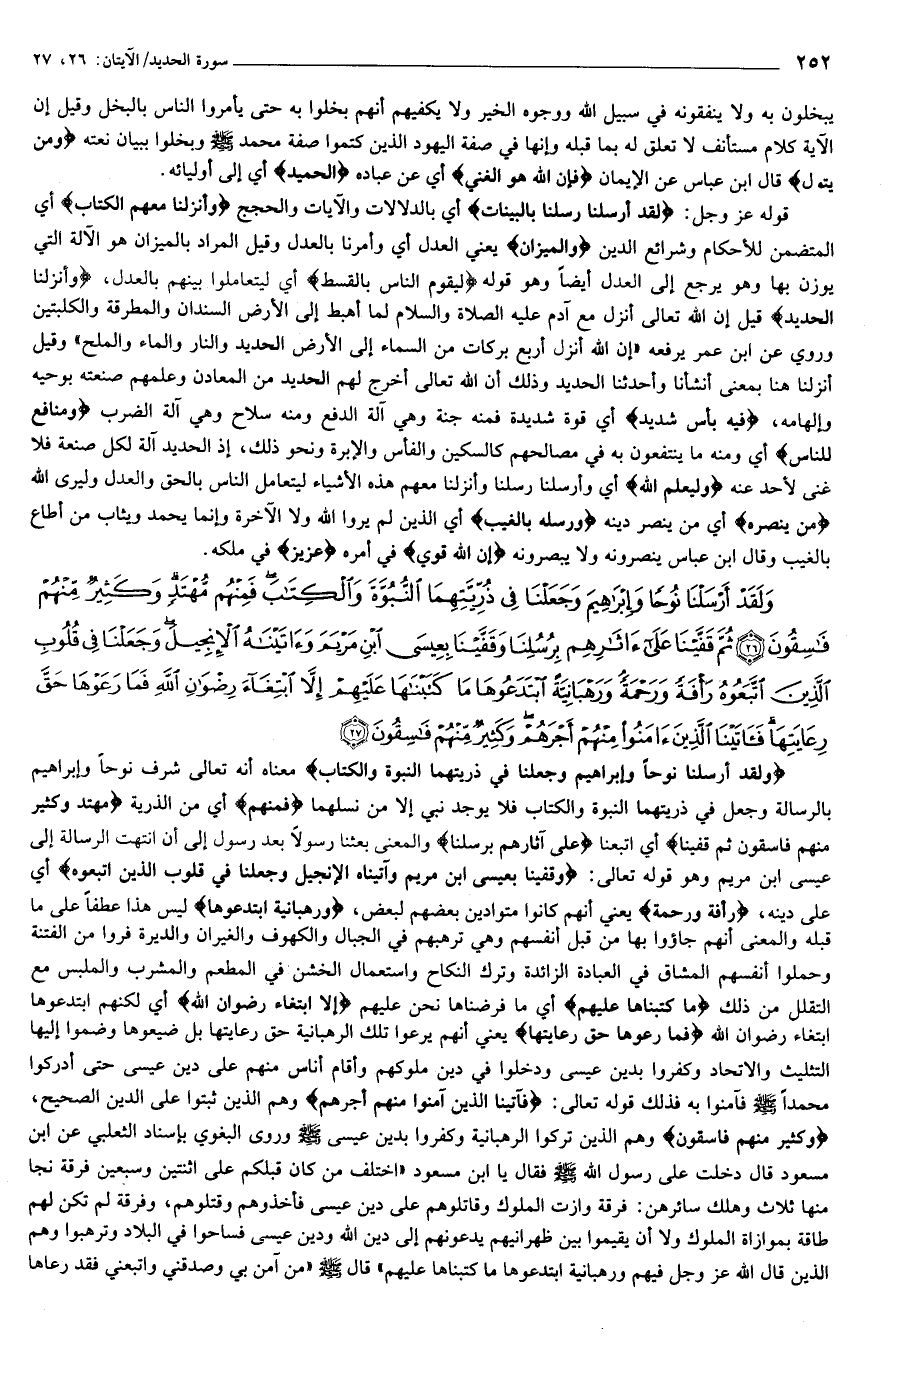 ٢٥٢ سورة الحديد/ الآيتان: ٢٦، ٢٧
يبخلون به ولا ينفقونه في سبيل الله ووجوه الخير ولا يكفيهم أنهم بخلوا به حتى يأمروا الناس بالبخل وقيل إن
الآية كلام مستأنف لا تعلق له بما قبله وإنها في صفة اليهود الذين كتموا صفة محمد ﷺ وبخلوا ببيان نعته ﴿ومن
يتول﴾ قال ابن عباس عن الإيمان ﴿فإن الله هو الغني﴾ أي عن عباده ﴿الحميد﴾ أي إلى أوليائه.
قوله عز وجل: ﴿لقد أرسلنا رسلنا بالبينات﴾ أي بالدلالات والآيات والحجج ﴿وأنزلنا معهم الكتاب﴾ أي
المتضمن للأحكام وشرائع الدين ﴿والميزان﴾ يعني العدل أي وأمرنا بالعدل وقيل المراد بالميزان هو الآلة التي
يوزن بها وهو يرجع إلى العدل أيضاً وهو قوله ﴿ليقوم الناس بالقسط﴾ أي ليتعاملوا بينهم بالعدل، ﴿وأنزلنا
الحديد﴾ قيل إن الله تعالى أنزل مع آدم عليه الصلاة والسلام لما أهبط إلى الأرض السندان والمطرقة والكلبتين
وروي عن ابن عمر يرفعه «إن الله أنزل أربع بركات من السماء إلى الأرض الحديد والنار والماء والملح» وقيل
أنزلنا هنا بمعنى أنشأنا وأحدثنا الحديد وذلك أن الله تعالى أخرج لهم الحديد من المعادن وعلمهم صنعته بوحيه
وإلهامه، ﴿فيه بأس شديد﴾ أي قوة شديدة فمنه جنة وهي آلة الدفع ومنه سلاح وهي آلة الضرب ﴿ومنافع
للناس﴾ أي ومنه ما ينتفعون به في مصالحهم كالسكين والفأس والإبرة ونحو ذلك، إذ الحديد آلة لكل صنعة فلا
غنى لأحد عنه ﴿وليعلم الله﴾ أي وأرسلنا رسلنا وأنزلنا معهم هذه الأشياء ليتعامل الناس بالحق والعدل وليرى الله
﴿من ينصره﴾ أي من ينصر دينه ﴿ورسله بالغيب﴾ أي الذين لم يروا الله ولا الآخرة وإنما يحمد ويثاب من أطاع
بالغيب وقال ابن عباس ينصرونه ولا يبصرونه ﴿إن الله قوي﴾ في أمره ﴿عزيز﴾ في ملكه.
وَلَقَدْ أَرْسَلْنَا نُوحًا وَإِبْرَاهِيمَ وَجَعَلْنَا فِي ذُرِّيَّتِهِمَا النُّبُوَّةَ وَالْكِتَابَ فَمِنْهُم مُّهْتَدٍ وَكَثِيرٌ مِّنْهُمْ
فَاسِقُونَ ﴿٢٦﴾ ثُمَّ قَفَّيْنَا عَلَىٰ ءَاثَارِهِم بِرُسُلِنَا وَقَفَّيْنَا بِعِيسَى ابْنِ مَرْيَمَ وَءَاتَيْنَاهُ الْإِنجِيلَ وَجَعَلْنَا فِي قُلُوبِ
الَّذِينَ اتَّبَعُوهُ رَأْفَةً وَرَحْمَةً وَرَهْبَانِيَّةً ابْتَدَعُوهَا مَا كَتَبْنَاهَا عَلَيْهِمْ إِلَّا ابْتِغَاءَ رِضْوَانِ اللَّهِ فَمَا رَعَوْهَا حَقَّ
رِعَايَتِهَا فَـَٔاتَيْنَا الَّذِينَ ءَامَنُوا مِنْهُمْ أَجْرَهُمْ وَكَثِيرٌ مِّنْهُمْ فَاسِقُونَ ﴿٢٧﴾
﴿ولقد أرسلنا نوحاً وإبراهيم وجعلنا في ذريتهما النبوة والكتاب﴾ معناه أنه تعالى شرف نوحاً وإبراهيم
بالرسالة وجعل في ذريتهما النبوة والكتاب فلا يوجد نبي إلا من نسلهما ﴿فمنهم﴾ أي من الذرية ﴿مهتد وكثير
منهم فاسقون ثم قفينا﴾ أي اتبعنا ﴿على آثارهم برسلنا﴾ والمعنى بعثنا رسولاً بعد رسول إلى أن انتهت الرسالة إلى
عيسى ابن مريم وهو قوله تعالى: ﴿وقفينا بعيسى ابن مريم وآتيناه الإنجيل وجعلنا في قلوب الذين اتبعوه﴾ أي
على دينه، ﴿رأفة ورحمة﴾ يعني أنهم كانوا متوادين بعضهم لبعض، ﴿ورهبانية ابتدعوها﴾ ليس هذا عطفاً على ما
قبله والمعنى أنهم جاؤوا بها من قبل أنفسهم وهي ترهبهم في الجبال والكهوف والغيران والديرة فروا من الفتنة
وحملوا أنفسهم المشاق في العبادة الزائدة وترك النكاح واستعمال الخشن في المطعم والمشرب والملبس مع
التقلل من ذلك ﴿ما كتبناها عليهم﴾ أي ما فرضناها نحن عليهم ﴿إلا ابتغاء رضوان الله﴾ أي لكنهم ابتدعوها
ابتغاء رضوان الله ﴿فما رعوها حق رعايتها﴾ يعني أنهم يرعوا تلك الرهبانية حق رعايتها بل ضيعوها وضموا إليها
التثليث والاتحاد وكفروا بدين عيسى ودخلوا في دين ملوكهم وأقام أناس منهم على دين عيسى حتى أدركوا
محمداً ﷺ فآمنوا به فذلك قوله تعالى: ﴿فآتينا الذين آمنوا منهم أجرهم﴾ وهم الذين ثبتوا على الدين الصحيح،
﴿وكثير منهم فاسقون﴾ وهم الذين تركوا الرهبانية وكفروا بدين عيسى ﷺ وروى البغوي بإسناد الثعلبي عن ابن
مسعود قال دخلت على رسول الله ﷺ فقال يا ابن مسعود «اختلف من كان قبلكم على اثنتين وسبعين فرقة نجا
منها ثلاث وهلك سائرهن: فرقة وازت الملوك وقاتلوهم على دين عيسى فأخذوهم وقتلوهم، وفرقة لم تكن لهم
طاقة بموازاة الملوك ولا أن يقيموا بين ظهرانيهم يدعونهم إلى دين الله ودين عيسى فساحوا في البلاد وترهبوا وهم
الذين قال الله عز وجل فيهم ورهبانية ابتدعوها ما كتبناها عليهم» قال ﷺ «من آمن بي وصدقني واتبعني فقد رعاها